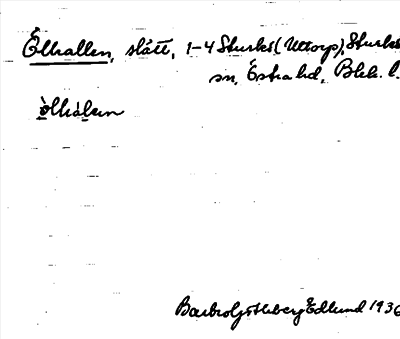 Ölhallen, slätt, 1-4 Sturkö (Uttorp), Sturkö
sn, Östra hd, Blek. l.
òlhàlen
Barbro Götlberg Edlund 1936